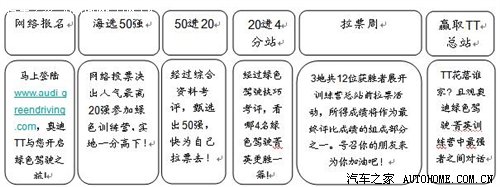 网络报名
海选50强
50进20
20进4
分站
拉票周
赢取TT
总站
马上登陆
www.audi g
reendriving
.com，奥迪
TT与您开启
绿色驾驶之
旅！
网络投票决
出人气最高
20强参加绿
色训练营，实
地一分高下！
经过综合
资料考
评，甄选
出50强，
快为自己
拉票去！
经过绿色
驾驶技巧
考评，看
哪4名绿
色驾驶菁
英更胜一
筹！
3地共12位获胜者展开
训练营总站前拉票活
动，所得成绩将作为最
终评比成绩的组成部分
之一。号召你的朋友来
为你加油吧！
TT花落谁
家？且观奥
迪绿色驾
驶菁英训
练营中最强
者之间对话
汽车之家 AUTOHOME.COM.CN